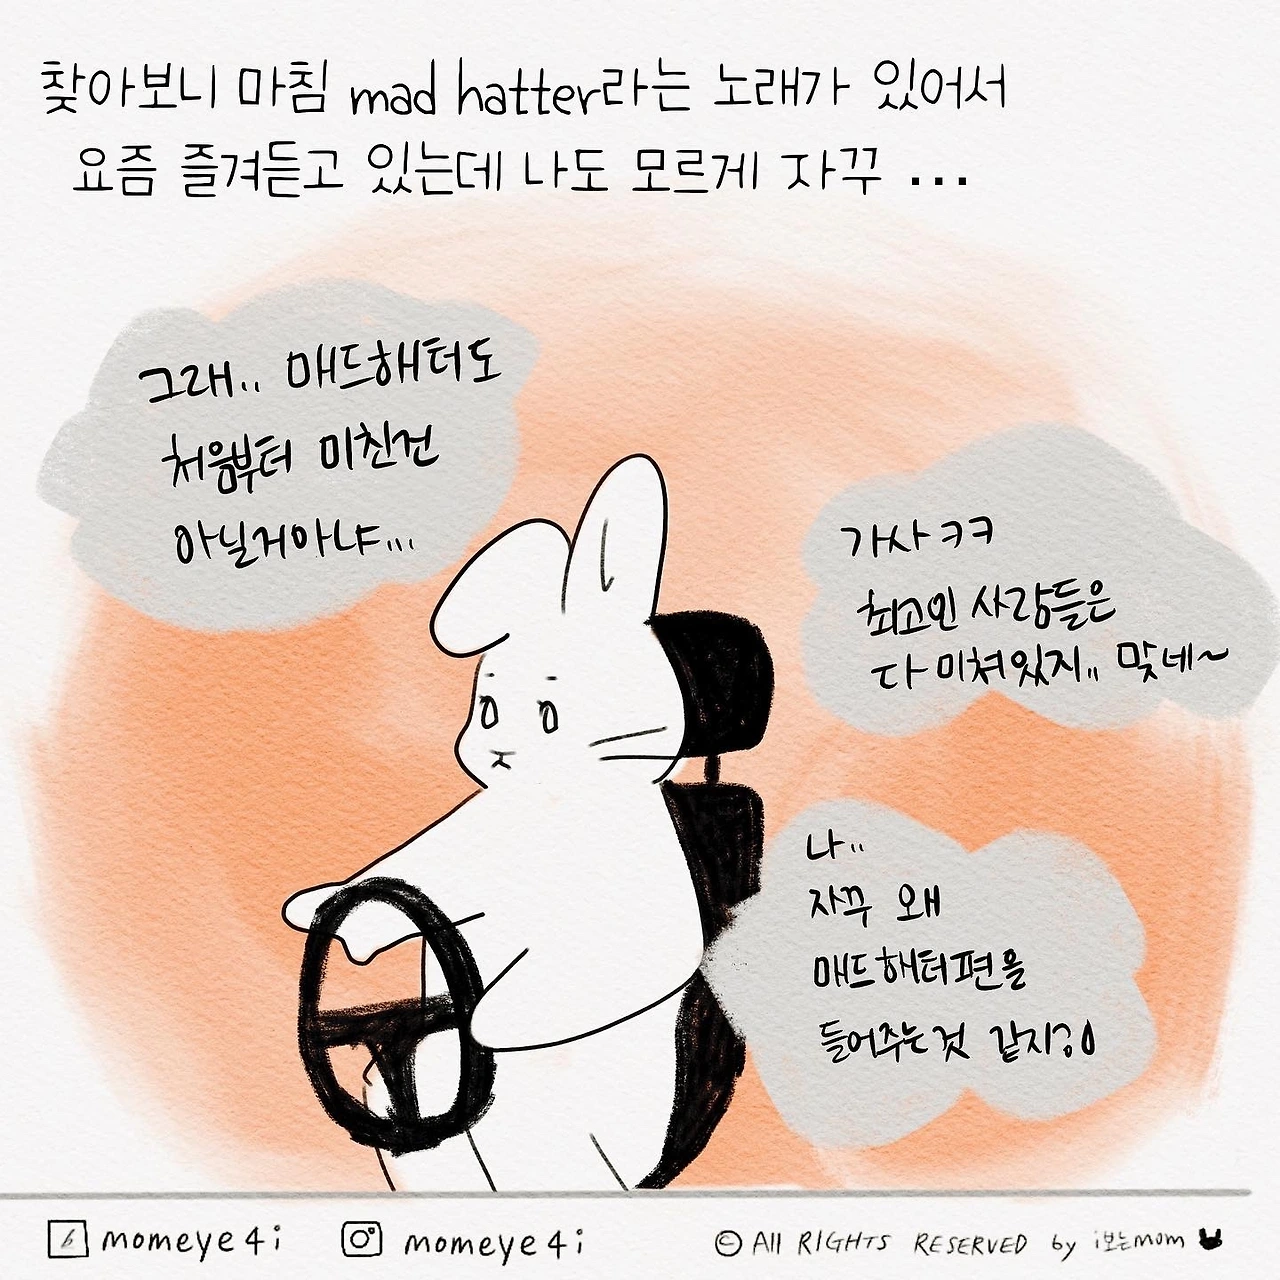 찾아보니 마침 mad hatter라는 노래가 있어서
요즘 즐겨듣고 있는데 나도 모르게 자꾸 ...
그래.. 매드해터도
처음부터 미친건
아닐거아냐...
가사 ㅋㅋ
최고인 사람들은
다 미쳐있지.. 맞네~
나..
자꾸 왜
매드해터편을
들어주는것 같지;;
momeye4i momeye4i © All RIGHTS RESERVED by i보는mom